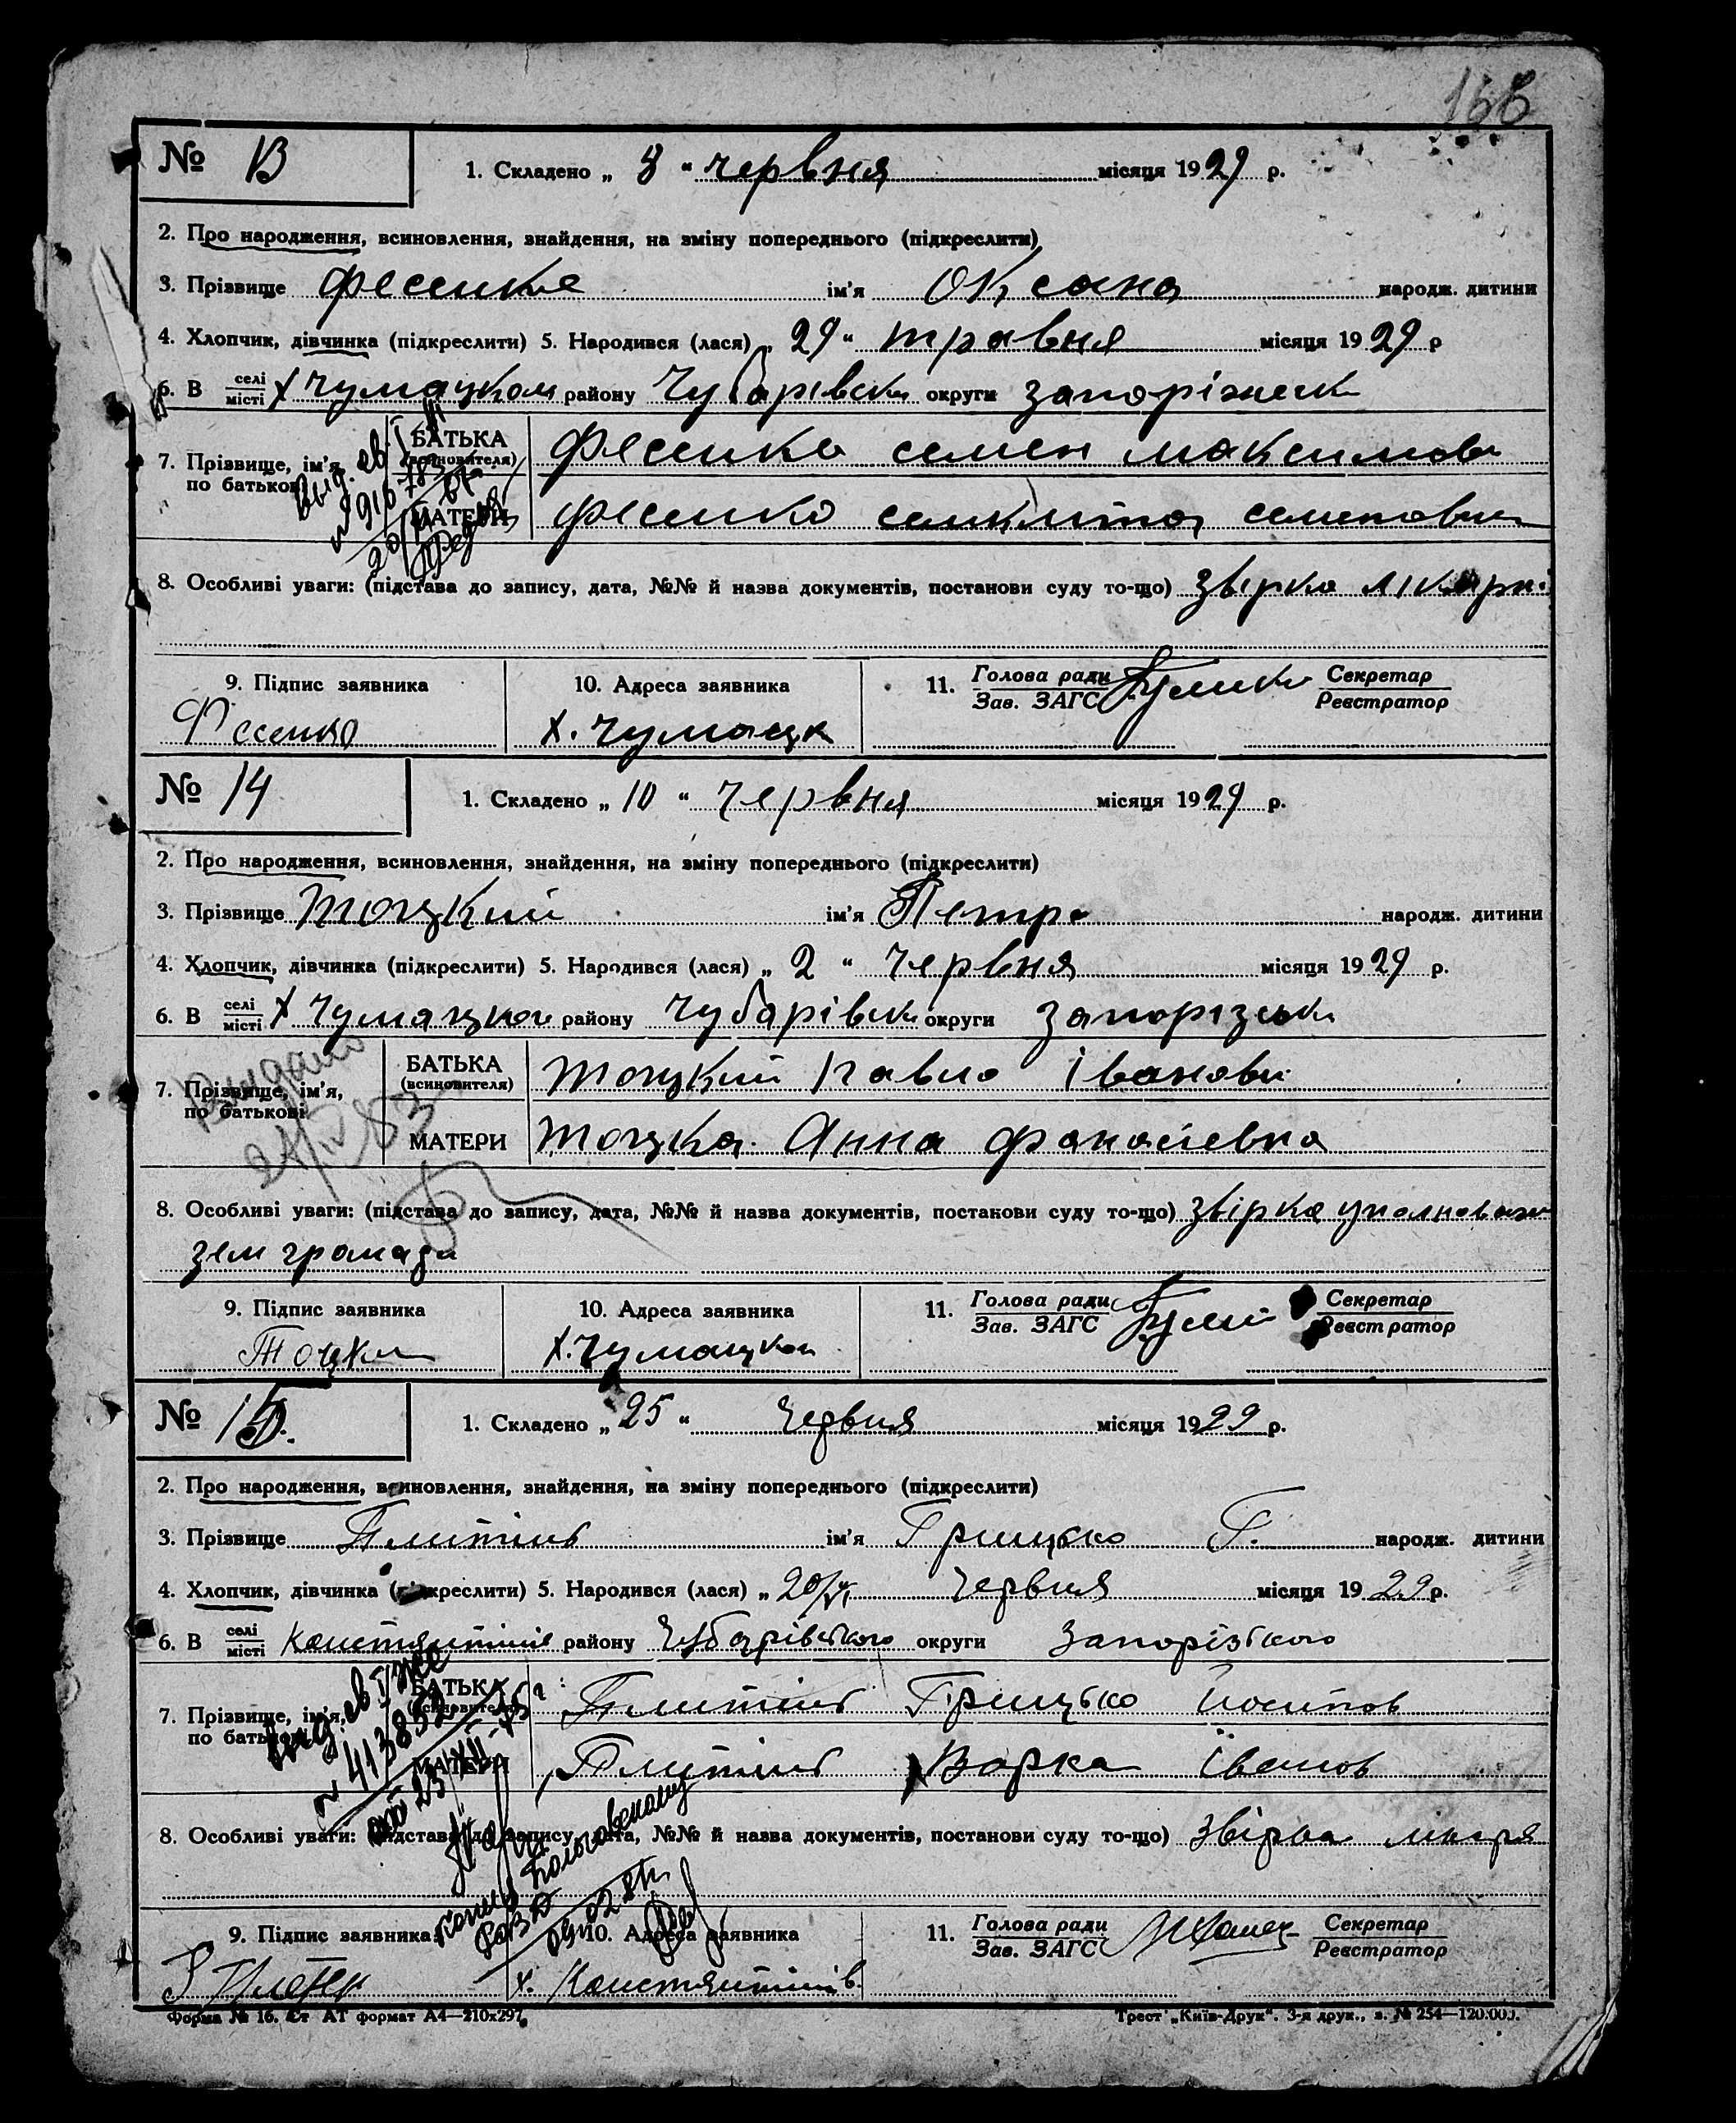 166
№ 13 1. Складено „ 8 “ червня місяця 1929 р.
2. Про народження, всиновлення, знайдення, на зміну попереднього (підкреслити)
3. Прізвище Фесенко ім'я Оксана народж. дитини
4. Хлопчик, дівчинка (підкреслити) 5. Народився (лася) „ 29 “ травня місяця 1929 р
6. В селі/місті х Чумацком району Чубарівськ округи запоріжськ
7. Прізвище, ім'я, по батькові
БАТЬКА (всиновителя) Фесенко семен максимови
МАТЕРИ Фесенко семеновна
Выд. св.
8. Особливі уваги: (підстава до запису, дата, №№ й назва документів, постанови суду то-що) звірка лікарні
9. Підпис заявника 10. Адреса заявника 11. Голова ради/Зав. ЗАГС Секретар/Реєстратор
Фесенко х. Чумацк
№ 14 1. Складено „ 10 “ червня місяця 1929 р.
2. Про народження, всиновлення, знайдення, на зміну попереднього (підкреслити)
3. Прізвище Тоцкий ім'я Петро народж. дитини
4. Хлопчик, дівчинка (підкреслити) 5. Народився (лася) „ 2 “ червня місяця 1929 р.
6. В селі/місті х Чумацком району Чубарівськ округи запорізськ
7. Прізвище, ім'я, по батькові
БАТЬКА (всиновителя) Тоцкий Павло Іванови
МАТЕРИ Тоцка Анна Фанасіевна
Видано
21/IV 83
8. Особливі уваги: (підстава до запису, дата, №№ й назва документів, постанови суду то-що) звірка уполноваж
зем громади
9. Підпис заявника 10. Адреса заявника 11. Голова ради/Зав. ЗАГС Секретар/Реєстратор
Тоцки х. Чумацком
№ 15. 1. Складено „ 25 “ червня місяця 1929 р.
2. Про народження, всиновлення, знайдення, на зміну попереднього (підкреслити)
3. Прізвище ім'я Грицько Г. народж. дитини
4. Хлопчик, дівчинка (підкреслити) 5. Народився (лася) „ 20/VI червня місяця 1929 р.
6. В селі/місті Констянтинів району Чубарівського округи Запорізького
7. Прізвище, ім'я, по батькові
БАТЬКА (всиновителя) Грицько Йосипов
МАТЕРИ Варка Іванов
№ 413852
8. Особливі уваги: (підстава до запису, дата, №№ й назва документів, постанови суду то-що) Звірка лікаря
9. Підпис заявника 10. Адреса заявника 11. Голова ради/Зав. ЗАГС Секретар/Реєстратор
х. Констянтинів
Форма № 16. Ст АТ формат А4—210х297. Трест „Київ-Друк“. 3-я друк., з. № 254—120.000.